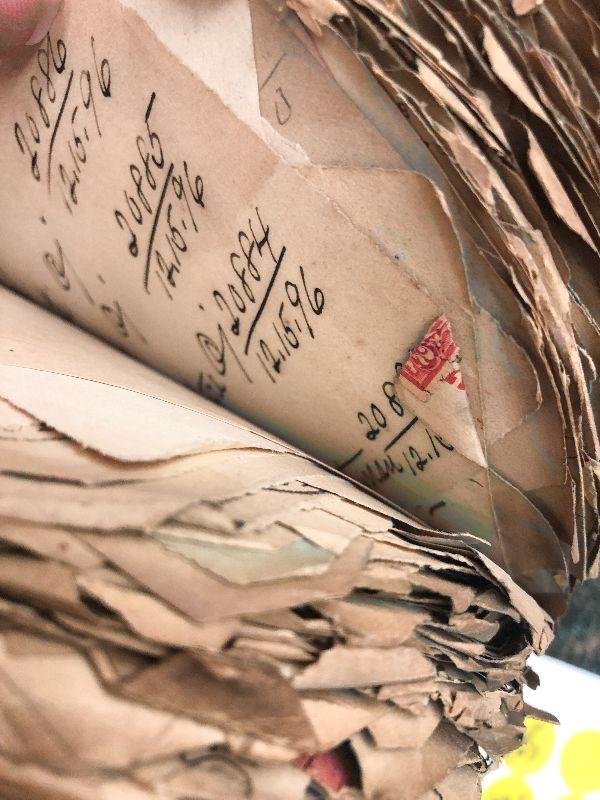 20886
12.15.96
20885
12.15.96
20884
12.15.96
208
12.1